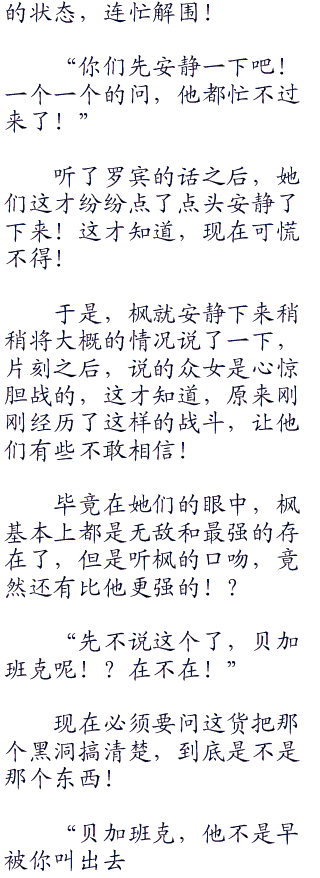 的状态，连忙解围！
“你们先安静一下吧！
一个一个的问，他都忙不过
来了！”
听了罗宾的话之后，她
们这才纷纷点了点头安静了
下来！这才知道，现在可慌
不得！
于是，枫就安静下来稍
稍将大概的情况说了一下，
片刻之后，说的众女是心惊
胆战的，这才知道，原来刚
刚经历了这样的战斗，让他
们有些不敢相信！
毕竟在她们的眼中，枫
基本上都是无敌和最强的存
在了，但是听枫的口吻，竟
然还有比他更强的！？
“先不说这个了，贝加
班克呢！？在不在！”
现在必须要问这货把那
个黑洞搞清楚，到底是不是
那个东西！
“贝加班克，他不是早
被你叫出去